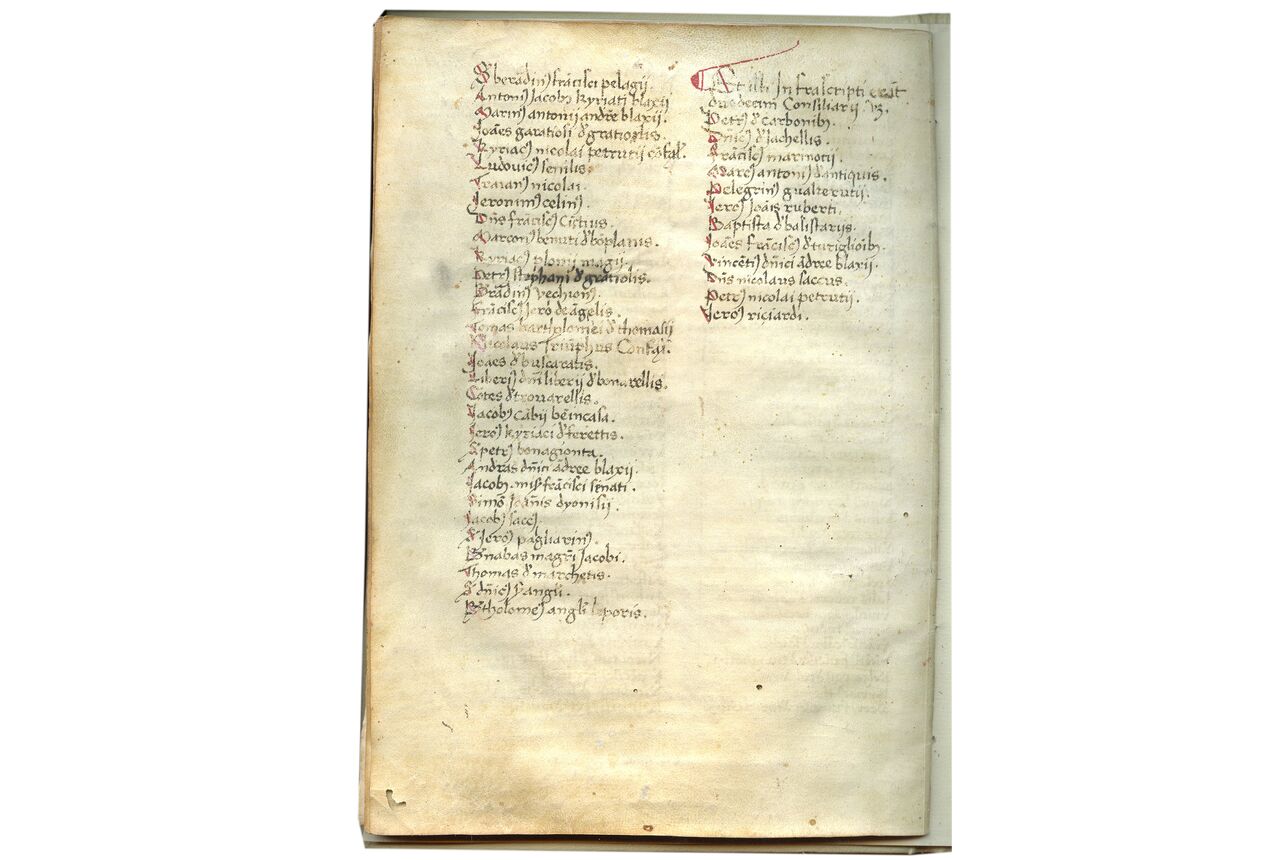 S beradinꝰ frãcisci pelagij.
Antoniꝰ Jacobi kyriati blaxij
Marinꝰ antonii andrẽe blaxij.
Joães garatioli đ gratiolis.
Kyriacꝰ nicolai petrutij
Ludovicꝰ senilis.
Traianꝰ nicolai.
Jeronimꝰ celinꝰ.
Dñs frãciscꝰ Cĩctius.
Marconꝰ benuti đ bõplanis.
Kyriacꝰ plomj magij.
Petrꝰ stephani đ gratiolis.
Bradinꝰ vechionꝰ.
Frãciscꝰ Jero de ãgelis.
Tomas bartholomei đ thomasij
Nicolaus Triũphus
Joães đ bulcaratis.
Liberiꝰ dñi liberij đ bonarellis.
Cõtes đ trovarellis.
Jacobꝰ cãbij bẽincasa.
Jeroꝰ kyriaci đ ferettis.
S petrꝰ bonagionta.
Andras dñici ãdree blaxij.
Jacobꝰ frãcisci senati.
Simõ Joãnis dyonisij.
Jacobꝰ saccꝰ.
S Jeroꝰ pagliarinꝰ.
Bnabas magrĩ Jacobi.
Thomas đ marchetis.
S dñicꝰ fangij.
Btholomeꝰ angli leporis.
Et isti Infrascripti erãt
duodecim Consiliarij vꝫ.
Petrꝰ đ carbonibꝰ.
Dñicꝰ đ Jachellis.
Frãciscꝰ marinotij.
Marcꝰ antoniꝰ đ antiquis.
Pelegrinꝰ gualterutij.
Jeroꝰ Joãis ruberti.
Baptista đ balistarijs.
Joães frãciscꝰ đ turiglioibꝰ.
Vincẽtiꝰ dñici ãdree blaxij.
Dñs nicolaus saccus.
Petrꝰ nicolai petrutij.
Jeroꝰ riciardi.